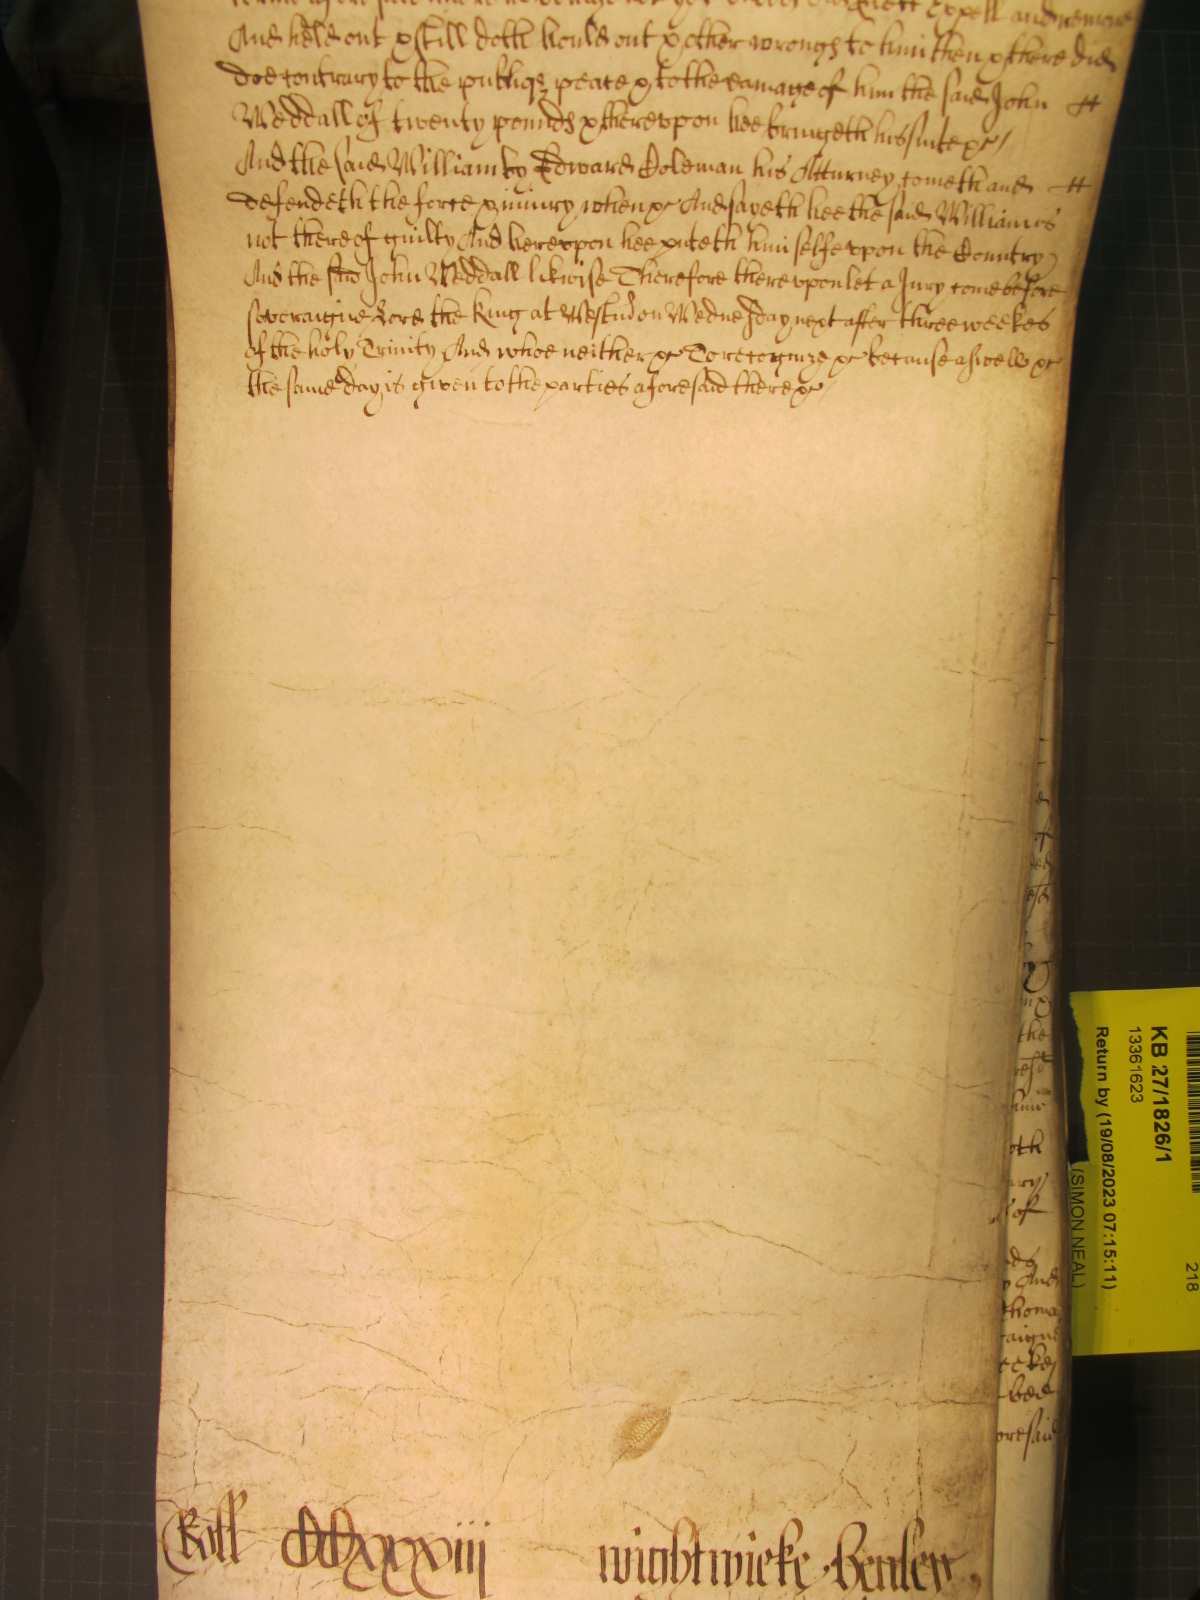 Expell and remove
And held out & still doth hould out & other wrongs to him then & there did
doe contrary to the publiq; peace & to the damage of him the said John
Weddall of twenty pounds & thereupon hee bringeth his suite &c/
And the said William by Edward Coleman his Atturney, cometh and
defendeth the force & iniury when &c And sayeth hee the said William is
not thereof guilty And hereupon hee putteth himselfe upon the Country
And the said John Weddall likwise Therefore thereupon let a Jury come before
soveraigne Lord the King at Westm on Wednesday next after three weekes
of the holy Trinity And whoe neither &c To recognize &c because aswell &c
the same day is given to the parties aforesaid there &c/
the
oth
of
And
aigne
bee
oresaid
Roll xxxiii wightwicke Henley
KB 27/1826/1
13361623
Return by (19/08/2023 07:15:11)
(SIMON NEAL)
218